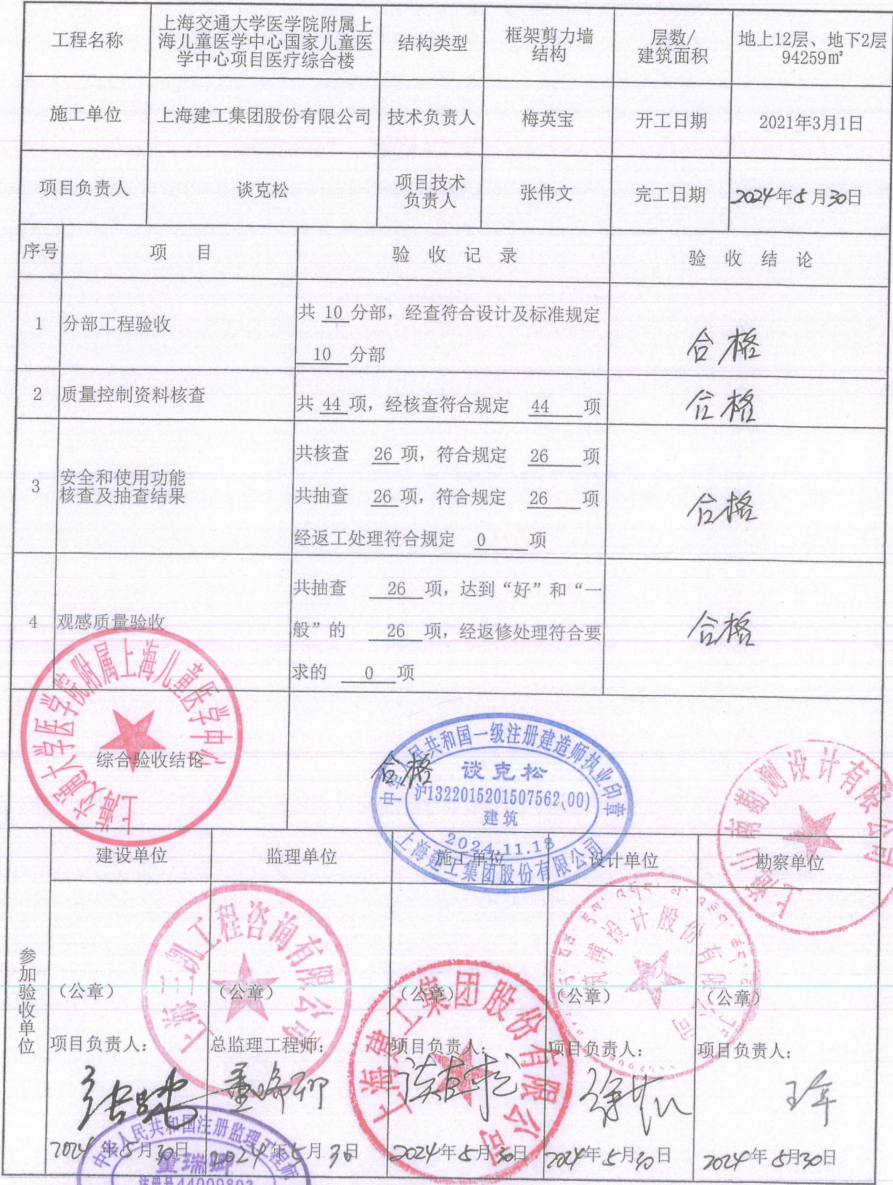 工程名称
上海交通大学医学院附属上
海儿童医学中心国家儿童医
学中心项目医疗综合楼
结构类型
框架剪力墙
结构
层数/
建筑面积
地上12层、地下2层
94259㎡
施工单位
上海建工集团股份有限公司
技术负责人
梅英宝
开工日期
2021年3月1日
项目负责人
谈克松
项目技术
负责人
张伟文
完工日期
2024年5月30日
序号
项 目
验 收 记 录
验 收 结 论
1
分部工程验收
共 10 分部，经查符合设计及标准规定
10 分部
合格
2
质量控制资料核查
共 44 项，经核查符合规定 44 项
合格
3
安全和使用功能
核查及抽查结果
共核查 26 项，符合规定 26 项
共抽查 26 项，符合规定 26 项
经返工处理符合规定 0 项
合格
4
观感质量验收
共抽查 26 项，达到“好”和“一
般”的 26 项，经返修处理符合要
求的 0 项
合格
综合验收结论
合格
上海交通大学医学院附属上海儿童医学中心
中华人民共和国一级注册建造师执业印章
谈克松
沪1322015201507562(00)
建筑
2024.11.18
上海建工集团股份有限公司
勘测设计有限公司
参加验收单位
建设单位
监理单位
施工单位
设计单位
勘察单位
（公章）
（公章）
（公章）
（公章）
（公章）
工程咨询有限公司
上海建工集团股份有限公司
筑博设计股份有限公司
项目负责人：
总监理工程师：
项目负责人：
项目负责人：
项目负责人：
谈克松
2024年5月30日
2024年5月30日
2024年5月30日
2024年5月30日
2024年5月30日
中华人民共和国注册监理工程师
童瑞卿
注册号44000803